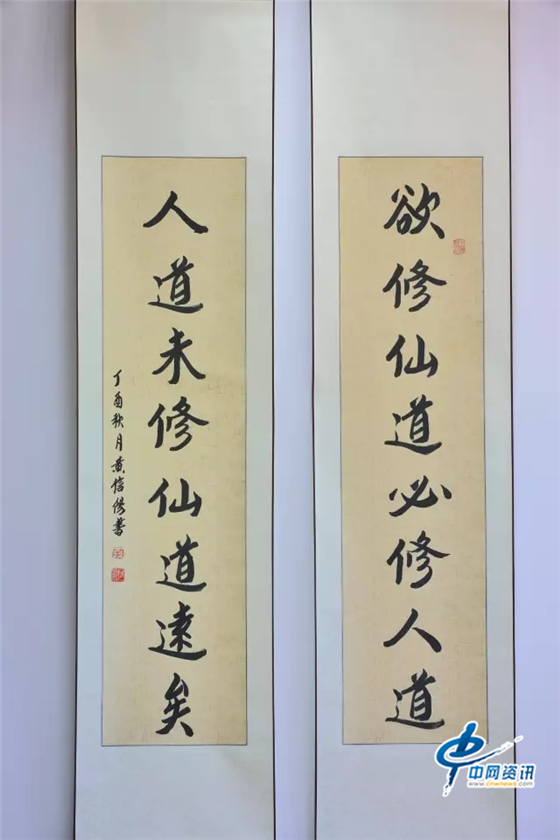 欲修仙道必修人道
人道未修仙道遠矣
丁酉秋月黄信傑書
中网资讯
www.cnwnews.com